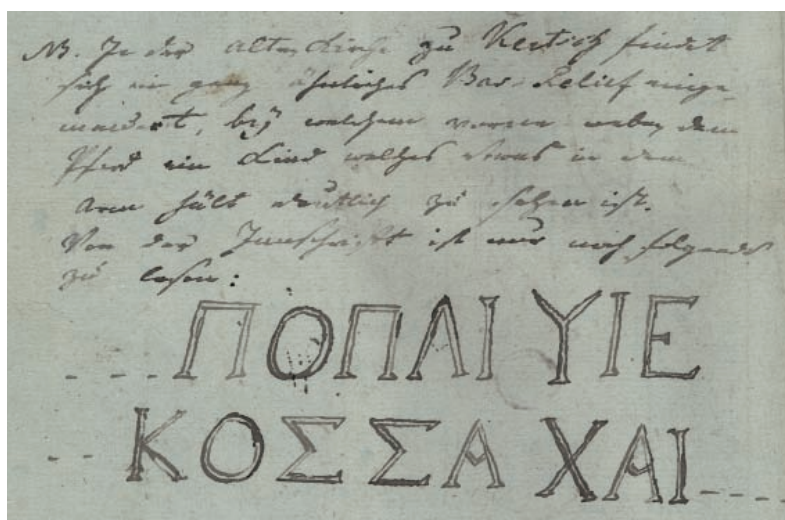 NB. In der alten Kirche zu Kertsch findet
sich ein ganz ähnliches Bas-Relief einge-
mauert, bey welchem vorne neben dem
Pferd ein Kind welches etwas in dem
Arm hält deutlich zu sehen ist.
Von der Innschrift ist nur noch folgendes
zu lesen:
---ΠΟΠΛΙ ΥΙΕ
--ΚΟΣΣΑ ΧΑΙ----